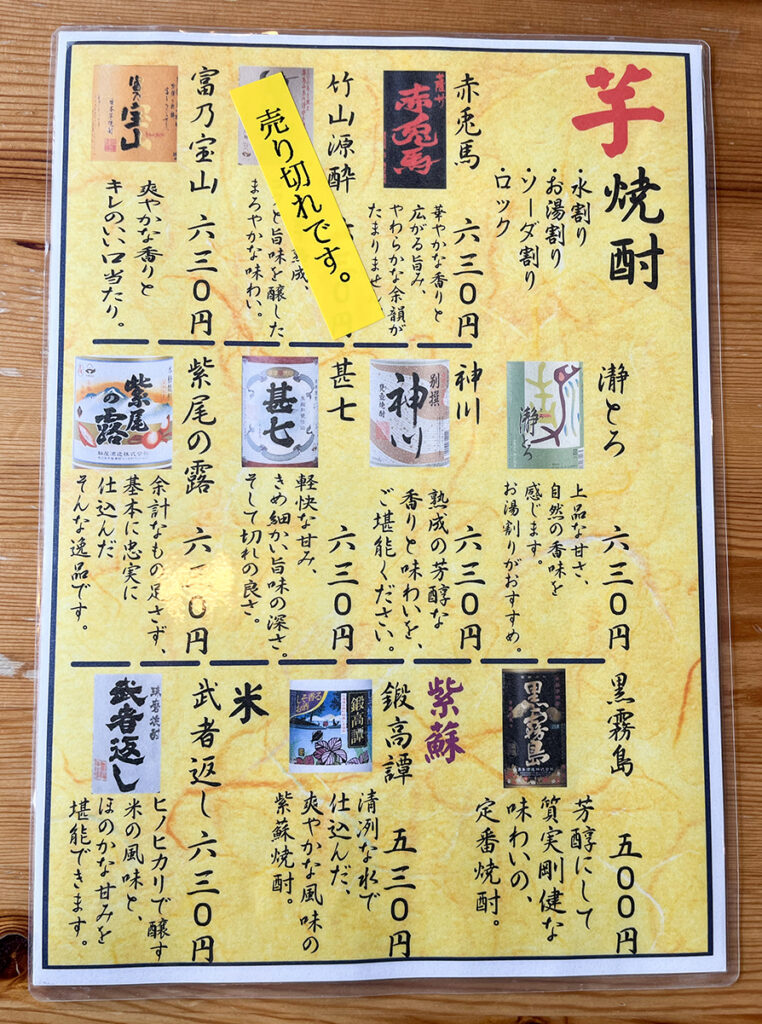 芋焼酎
・水割り
・お湯割り
・ソーダ割り
・ロック
赤兎馬 六三〇円
華やかな香りと
広がる旨み、
やわらかな余韻が
たまりません
薩州
赤兎馬
竹山源酔
売り切れです。
と旨味を醸した
まろやかな味わい。
富乃宝山 六三〇円
爽やかな香りと
キレのいい口当たり。
宝山
瀞とろ 六三〇円
上品な甘さ、
自然の香味を
感じます。
お湯割りがおすすめ。
瀞とろ
神川 六三〇円
熟成の芳醇な
香りと味わいを、
ご堪能ください。
別撰
神川
甚七 六三〇円
軽快な甘み、
きめ細かい旨味の深さ。
そして切れの良さ。
甚七
紫尾の露 六三〇円
余計なもの足さず、
基本に忠実に
仕込んだ
そんな逸品です。
紫尾の露
軸屋酒造株式会社
黒霧島 五〇〇円
芳醇にして
質実剛健な
味わいの、
定番焼酎。
黒霧島
紫蘇
鍛高譚 五三〇円
清冽な水で
仕込んだ、
爽やかな風味の
紫蘇焼酎。
鍛高譚
米
武者返し 六三〇円
ヒノヒカリで醸す
米の風味と、
ほのかな甘みを
堪能できます。
球磨焼酎
武者返し